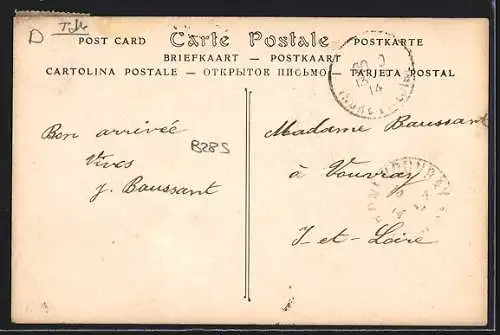 D
POST CARD Carte Postale POSTKARTE
BRIEFKAART — POSTKAART
CARTOLINA POSTALE — ОТКРЫТОК ПИСЬМО — TARJETA POSTAL
14
Bon arrivée
Vives
J. Baussant
B28S
Madame Baussant
à Vouvray
I-et-Loire